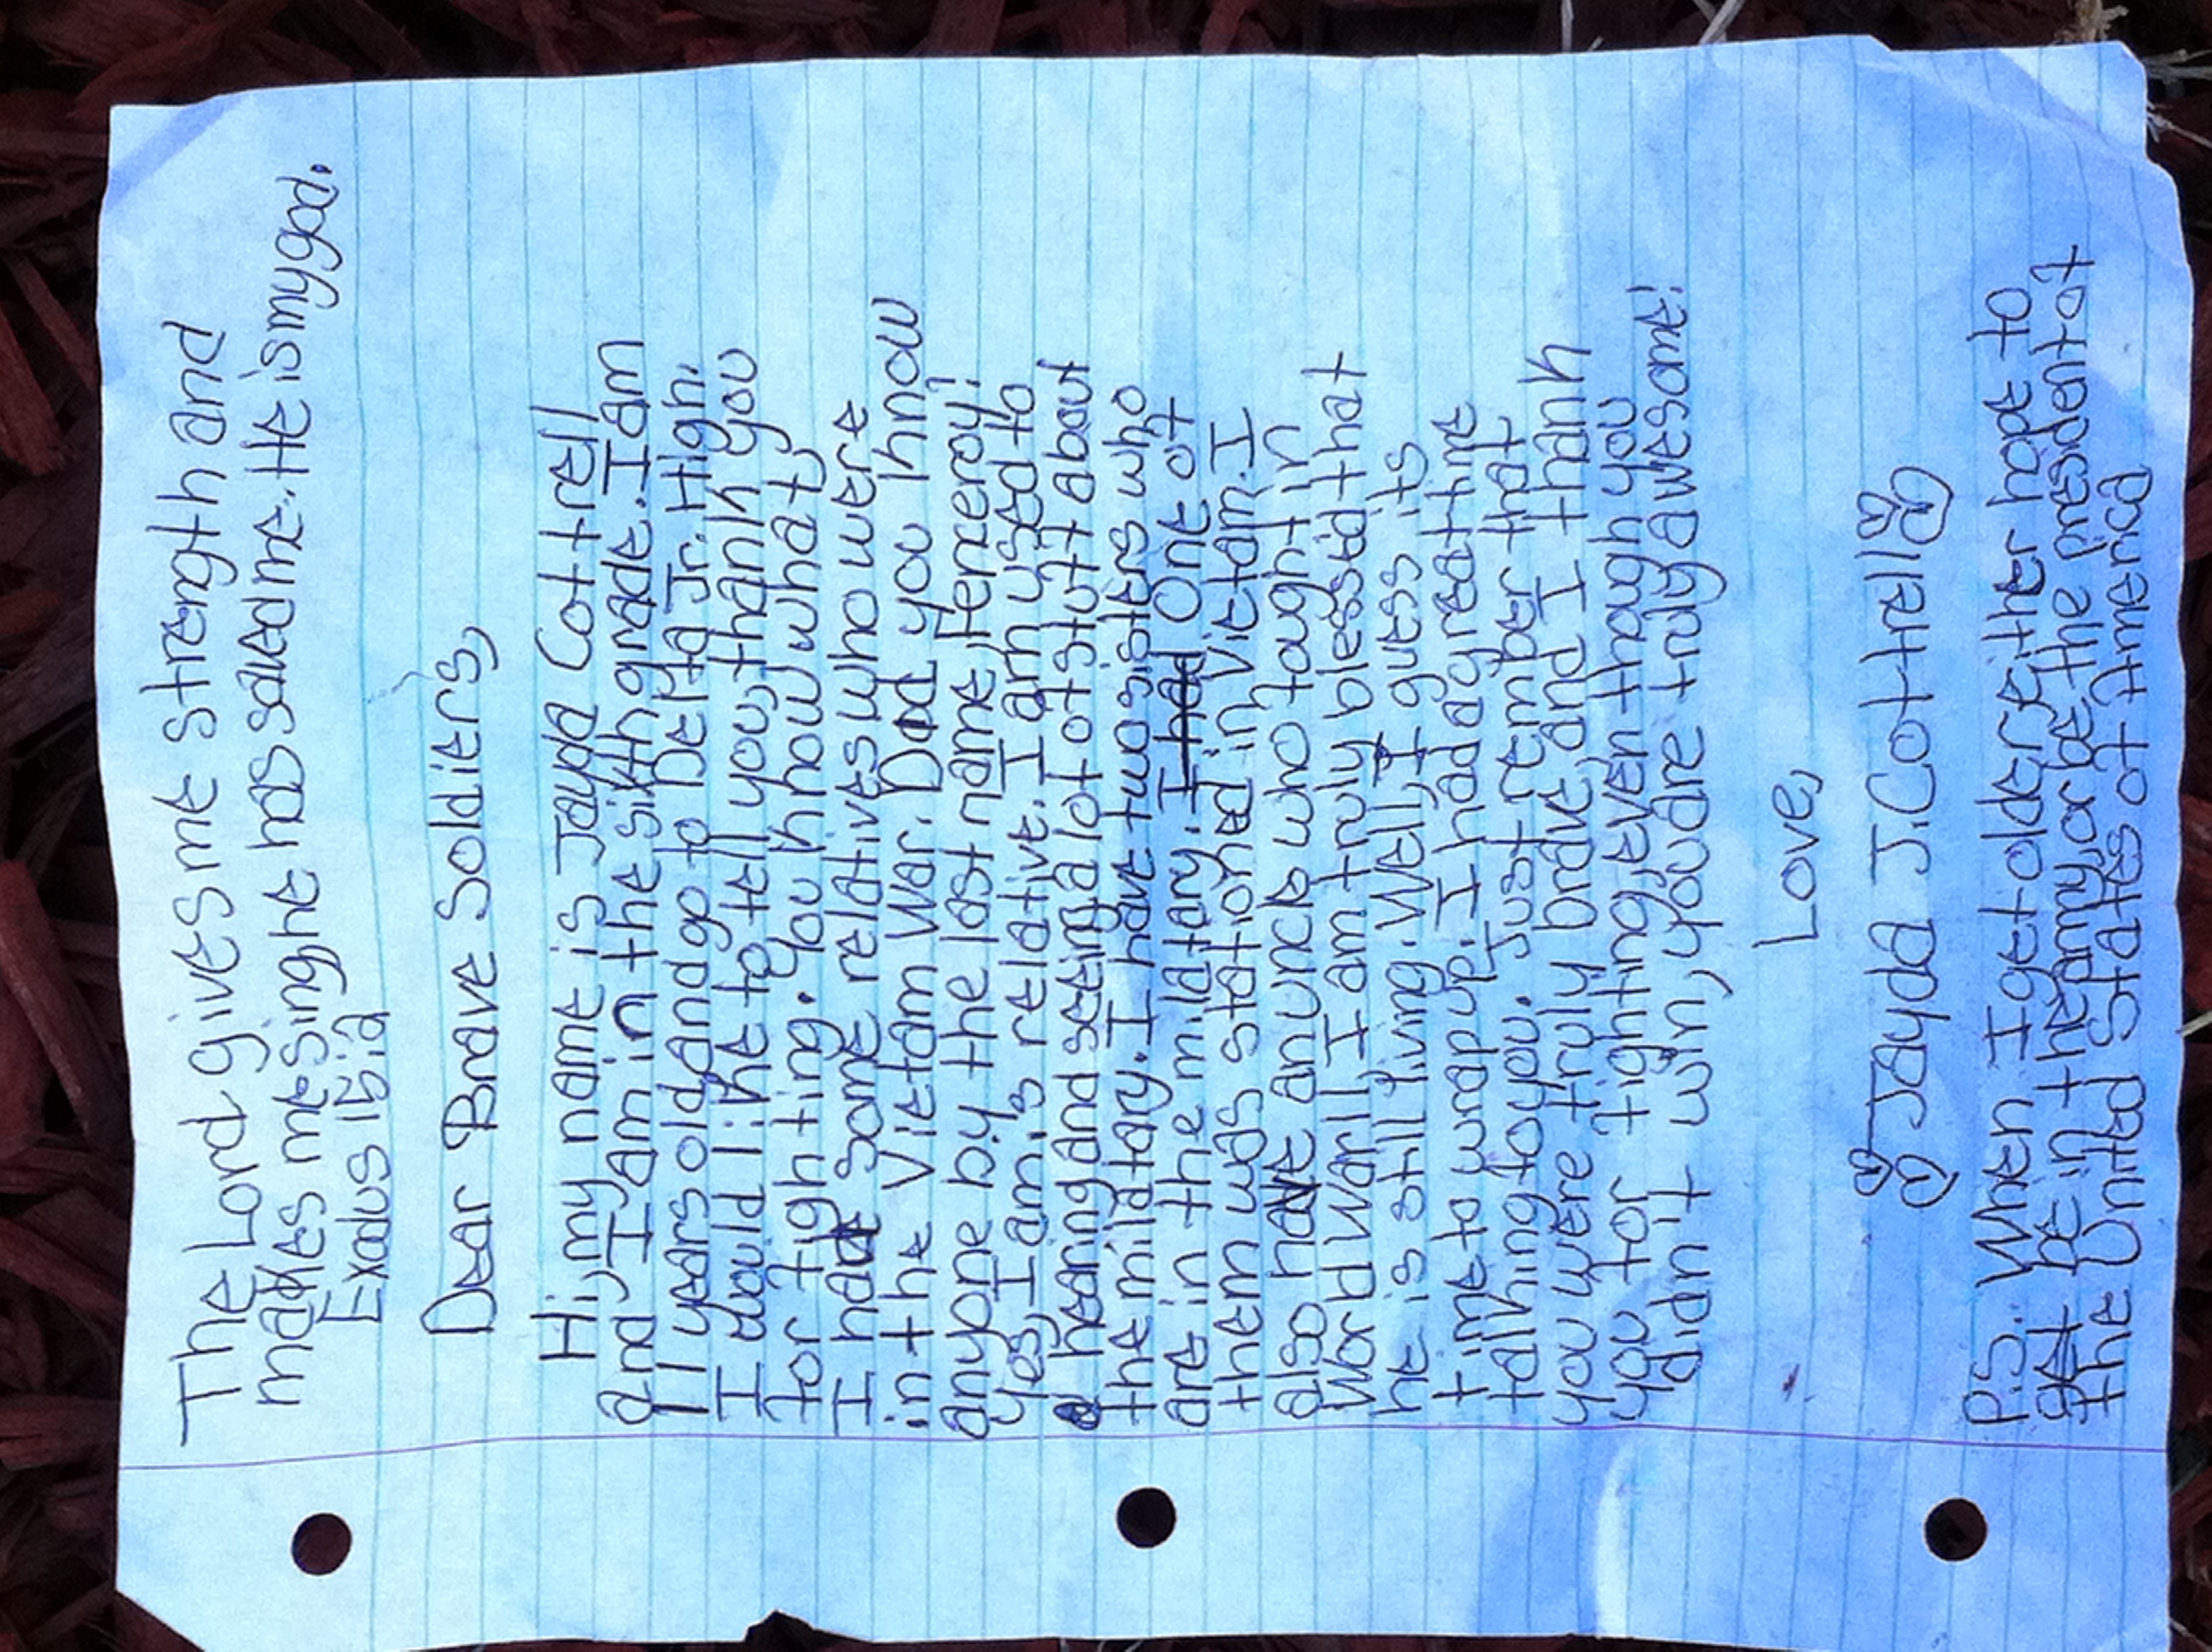 The Lord gives me strength and
makes me sing he has saved me. He is my god.
Exodus 15:2
Dear Brave Soldiers,
Hi, my name is Jayda Cottrell
and I am in the sixth grade. I am
11 years old and go to Delta Jr. High.
I would like to tell you, thank you
for fighting. You know what?
I have some relatives who were
in the Vietam War. Did you know
anyone by the last name Fenceroy?
Yes, I am, is relative. I am used to
hearing and seeing a lot of stuff about
the mildtary. I have two sisters who
are in the mildtary. I had One of
them was stationed in Vietam. I
also have an uncle who fought in
World War II. I am truly blessed that
he is still living. Well, I guess its
time to wrap up. I had a great time
talking to you. Just rember that
you were truly brave, and I thank
you for fighting, even though you
didn't win, you are truly awesome!
Love,
Jayda J. Cottrell
P.S. When I get older either hope to
get be in the army, or be the presdent of
the United States of America